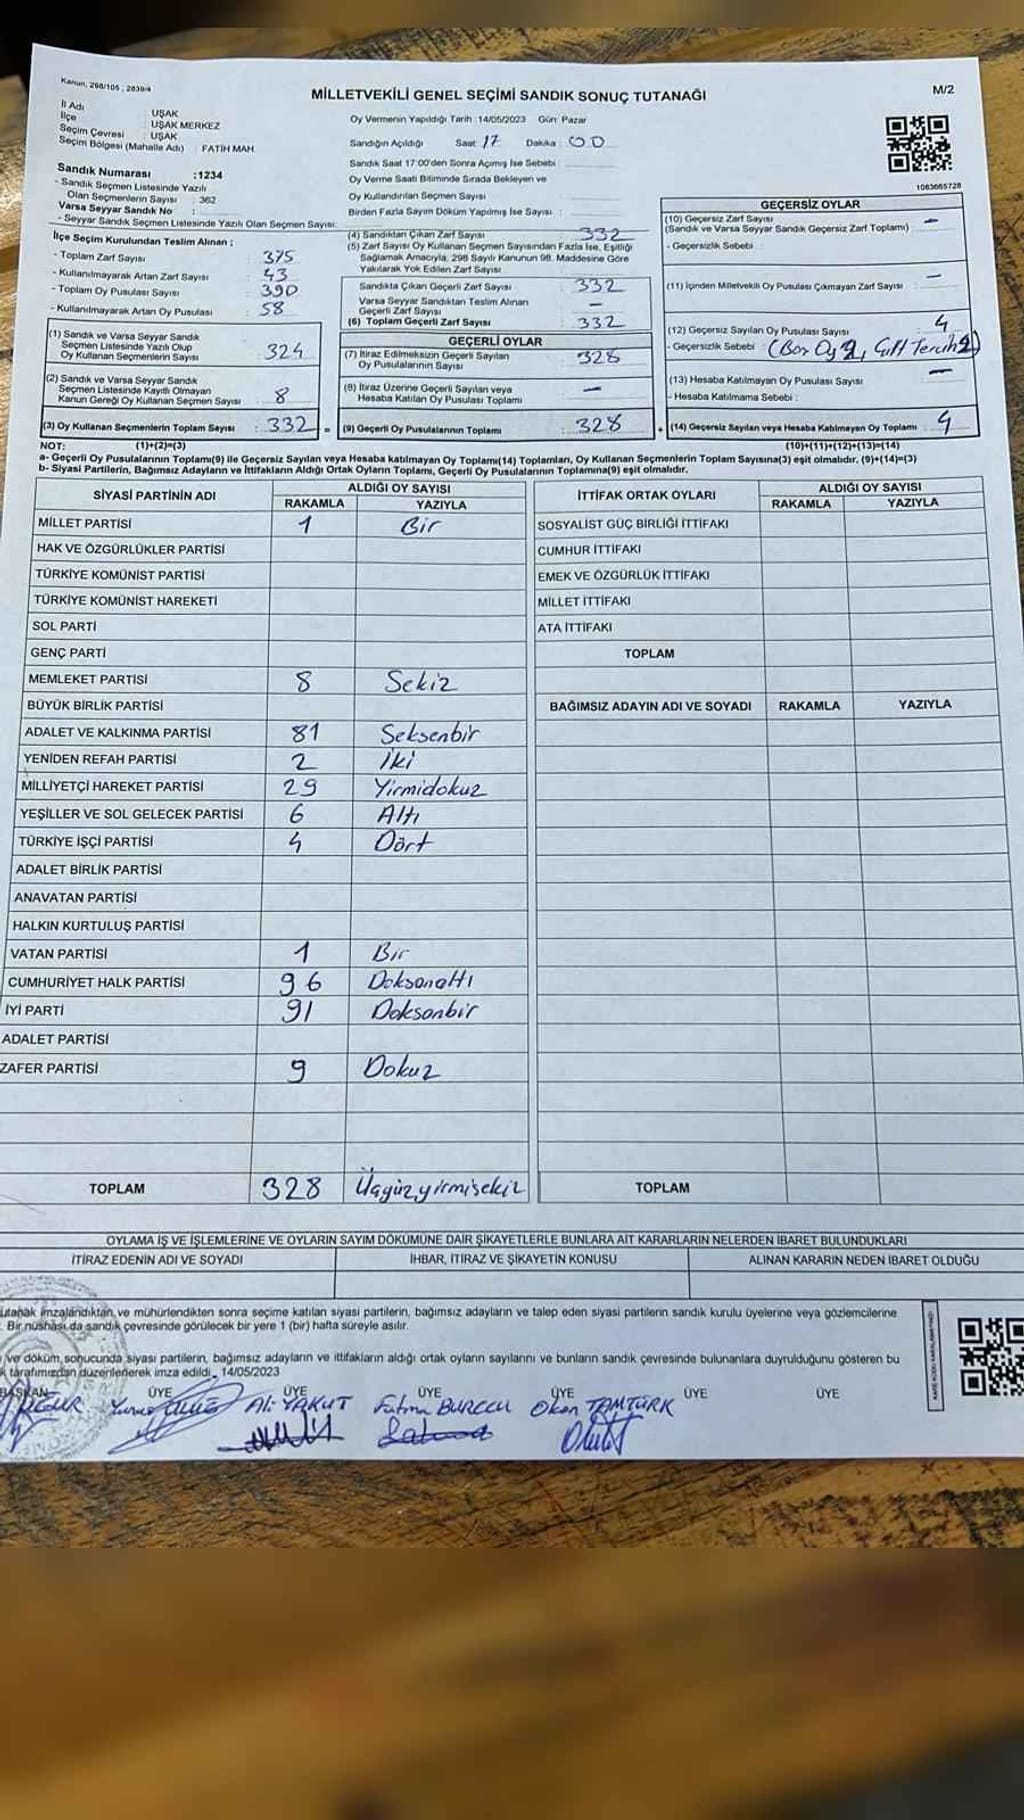 Kanun, 298/105 , 2839/4
MİLLETVEKİLİ GENEL SEÇİMİ SANDIK SONUÇ TUTANAĞI
M/2
İl Adı : UŞAK
İlçe : UŞAK MERKEZ
Seçim Çevresi : UŞAK
Seçim Bölgesi (Mahalle Adı) : FATİH MAH
Sandık Numarası :1234
- Sandık Seçmen Listesinde Yazılı
Olan Seçmenlerin Sayısı : 362
Varsa Seyyar Sandık No :
- Seyyar Sandık Seçmen Listesinde Yazılı Olan Seçmen Sayısı:
Oy Vermenin Yapıldığı Tarih :14/05/2023 Gün: Pazar
Sandığın Açıldığı Saat : 17 Dakika : 00
Sandık Saat 17:00'den Sonra Açımış İse Sebebi :
Oy Verme Saati Bitiminde Sırada Bekleyen ve
Oy Kullandırılan Seçmen Sayısı :
Birden Fazla Sayım Döküm Yapılmış İse Sayısı :
1083665728
İlçe Seçim Kurulundan Teslim Alınan ;
- Toplam Zarf Sayısı : 375
- Kullanılmayarak Artan Zarf Sayısı : 43
- Toplam Oy Pusulası Sayısı : 390
- Kullanılmayarak Artan Oy Pusulası : 58
(1) Sandık ve Varsa Seyyar Sandık
Seçmen Listesinde Yazılı Olup
Oy Kullanan Seçmenlerin Sayısı : 324
(2) Sandık ve Varsa Seyyar Sandık
Seçmen Listesinde Kayıtlı Olmayan
Kanun Gereği Oy Kullanan Seçmen Sayısı : 8
(3) Oy Kullanan Seçmenlerin Toplam Sayısı : 332 =
(4) Sandıktan Çıkan Zarf Sayısı : 332
(5) Zarf Sayısı Oy Kullanan Seçmen Sayısından Fazla İse, Eşitliği
Sağlamak Amacıyla, 298 Sayılı Kanunun 98. Maddesine Göre
Yakılarak Yok Edilen Zarf Sayısı :
Sandıkta Çıkan Geçerli Zarf Sayısı : 332
Varsa Seyyar Sandıktan Teslim Alınan
Geçerli Zarf Sayısı : –
(6) Toplam Geçerli Zarf Sayısı : 332
GEÇERLİ OYLAR
(7) İtiraz Edilmeksizin Geçerli Sayılan
Oy Pusulalarının Sayısı : 328
(8) İtiraz Üzerine Geçerli Sayılan veya
Hesaba Katılan Oy Pusulası Toplamı : –
(9) Geçerli Oy Pusulalarının Toplamı : 328 +
GEÇERSİZ OYLAR
(10) Geçersiz Zarf Sayısı : –
(Sandık ve Varsa Seyyar Sandık Geçersiz Zarf Toplamı)
- Geçersizlik Sebebi :
(11) İçinden Milletvekili Oy Pusulası Çıkmayan Zarf Sayısı : –
(12) Geçersiz Sayılan Oy Pusulası Sayısı : 4
- Geçersizlik Sebebi : (Boş Oy 2, Çift Tercih 2)
(13) Hesaba Katılmayan Oy Pusulası Sayısı : –
- Hesaba Katılmama Sebebi :
(14) Geçersiz Sayılan veya Hesaba Katılmayan Oy Toplamı : 4
NOT: (1)+(2)=(3) (10)+(11)+(12)+(13)=(14)
a- Geçerli Oy Pusulalarının Toplamı(9) ile Geçersiz Sayılan veya Hesaba katılmayan Oy Toplamı(14) Toplamları, Oy Kullanan Seçmenlerin Toplam Sayısına(3) eşit olmalıdır. (9)+(14)=(3)
b- Siyasi Partilerin, Bağımsız Adayların ve İttifakların Aldığı Ortak Oyların Toplamı, Geçerli Oy Pusulalarının Toplamına(9) eşit olmalıdır.
SİYASİ PARTİNİN ADI ALDIĞI OY SAYISI
RAKAMLA YAZIYLA
MİLLET PARTİSİ 1 Bir
HAK VE ÖZGÜRLÜKLER PARTİSİ
TÜRKİYE KOMÜNİST PARTİSİ
TÜRKİYE KOMÜNİST HAREKETİ
SOL PARTİ
GENÇ PARTİ
MEMLEKET PARTİSİ 8 Sekiz
BÜYÜK BİRLİK PARTİSİ
ADALET VE KALKINMA PARTİSİ 81 Seksenbir
YENİDEN REFAH PARTİSİ 2 İki
MİLLİYETÇİ HAREKET PARTİSİ 29 Yirmidokuz
YEŞİLLER VE SOL GELECEK PARTİSİ 6 Altı
TÜRKİYE İŞÇİ PARTİSİ 4 Dört
ADALET BİRLİK PARTİSİ
ANAVATAN PARTİSİ
HALKIN KURTULUŞ PARTİSİ
VATAN PARTİSİ 1 Bir
CUMHURİYET HALK PARTİSİ 96 Doksanaltı
İYİ PARTİ 91 Doksanbir
ADALET PARTİSİ
ZAFER PARTİSİ 9 Dokuz
TOPLAM 328 Üçyüzyirmisekiz
İTTİFAK ORTAK OYLARI ALDIĞI OY SAYISI
RAKAMLA YAZIYLA
SOSYALİST GÜÇ BİRLİĞİ İTTİFAKI
CUMHUR İTTİFAKI
EMEK VE ÖZGÜRLÜK İTTİFAKI
MİLLET İTTİFAKI
ATA İTTİFAKI
TOPLAM
BAĞIMSIZ ADAYIN ADI VE SOYADI RAKAMLA YAZIYLA
TOPLAM
OYLAMA İŞ VE İŞLEMLERİNE VE OYLARIN SAYIM DÖKÜMÜNE DAİR ŞİKAYETLERLE BUNLARA AİT KARARLARIN NELERDEN İBARET BULUNDUKLARI
İTİRAZ EDENİN ADI VE SOYADI İHBAR, İTİRAZ VE ŞİKAYETİN KONUSU ALINAN KARARIN NEDEN İBARET OLDUĞU
utanak imzalandıktan ve mühürlendikten sonra seçime katılan siyasi partilerin, bağımsız adayların ve talep eden siyasi partilerin sandık kurulu üyelerine veya gözlemcilerine
Bir nüshası da sandık çevresinde görülecek bir yere 1 (bir) hafta süreyle asılır.
ve döküm sonucunda siyasi partilerin, bağımsız adayların ve ittifakların aldığı ortak oyların sayılarını ve bunların sandık çevresinde bulunanlara duyrulduğunu gösteren bu
k tarafımızdan düzenlenerek imza edildi. 14/05/2023
BAŞKAN ÜYE ÜYE ÜYE ÜYE ÜYE ÜYE
Ali YAKUT Fatma BURCCU Okan TAMTÜRK